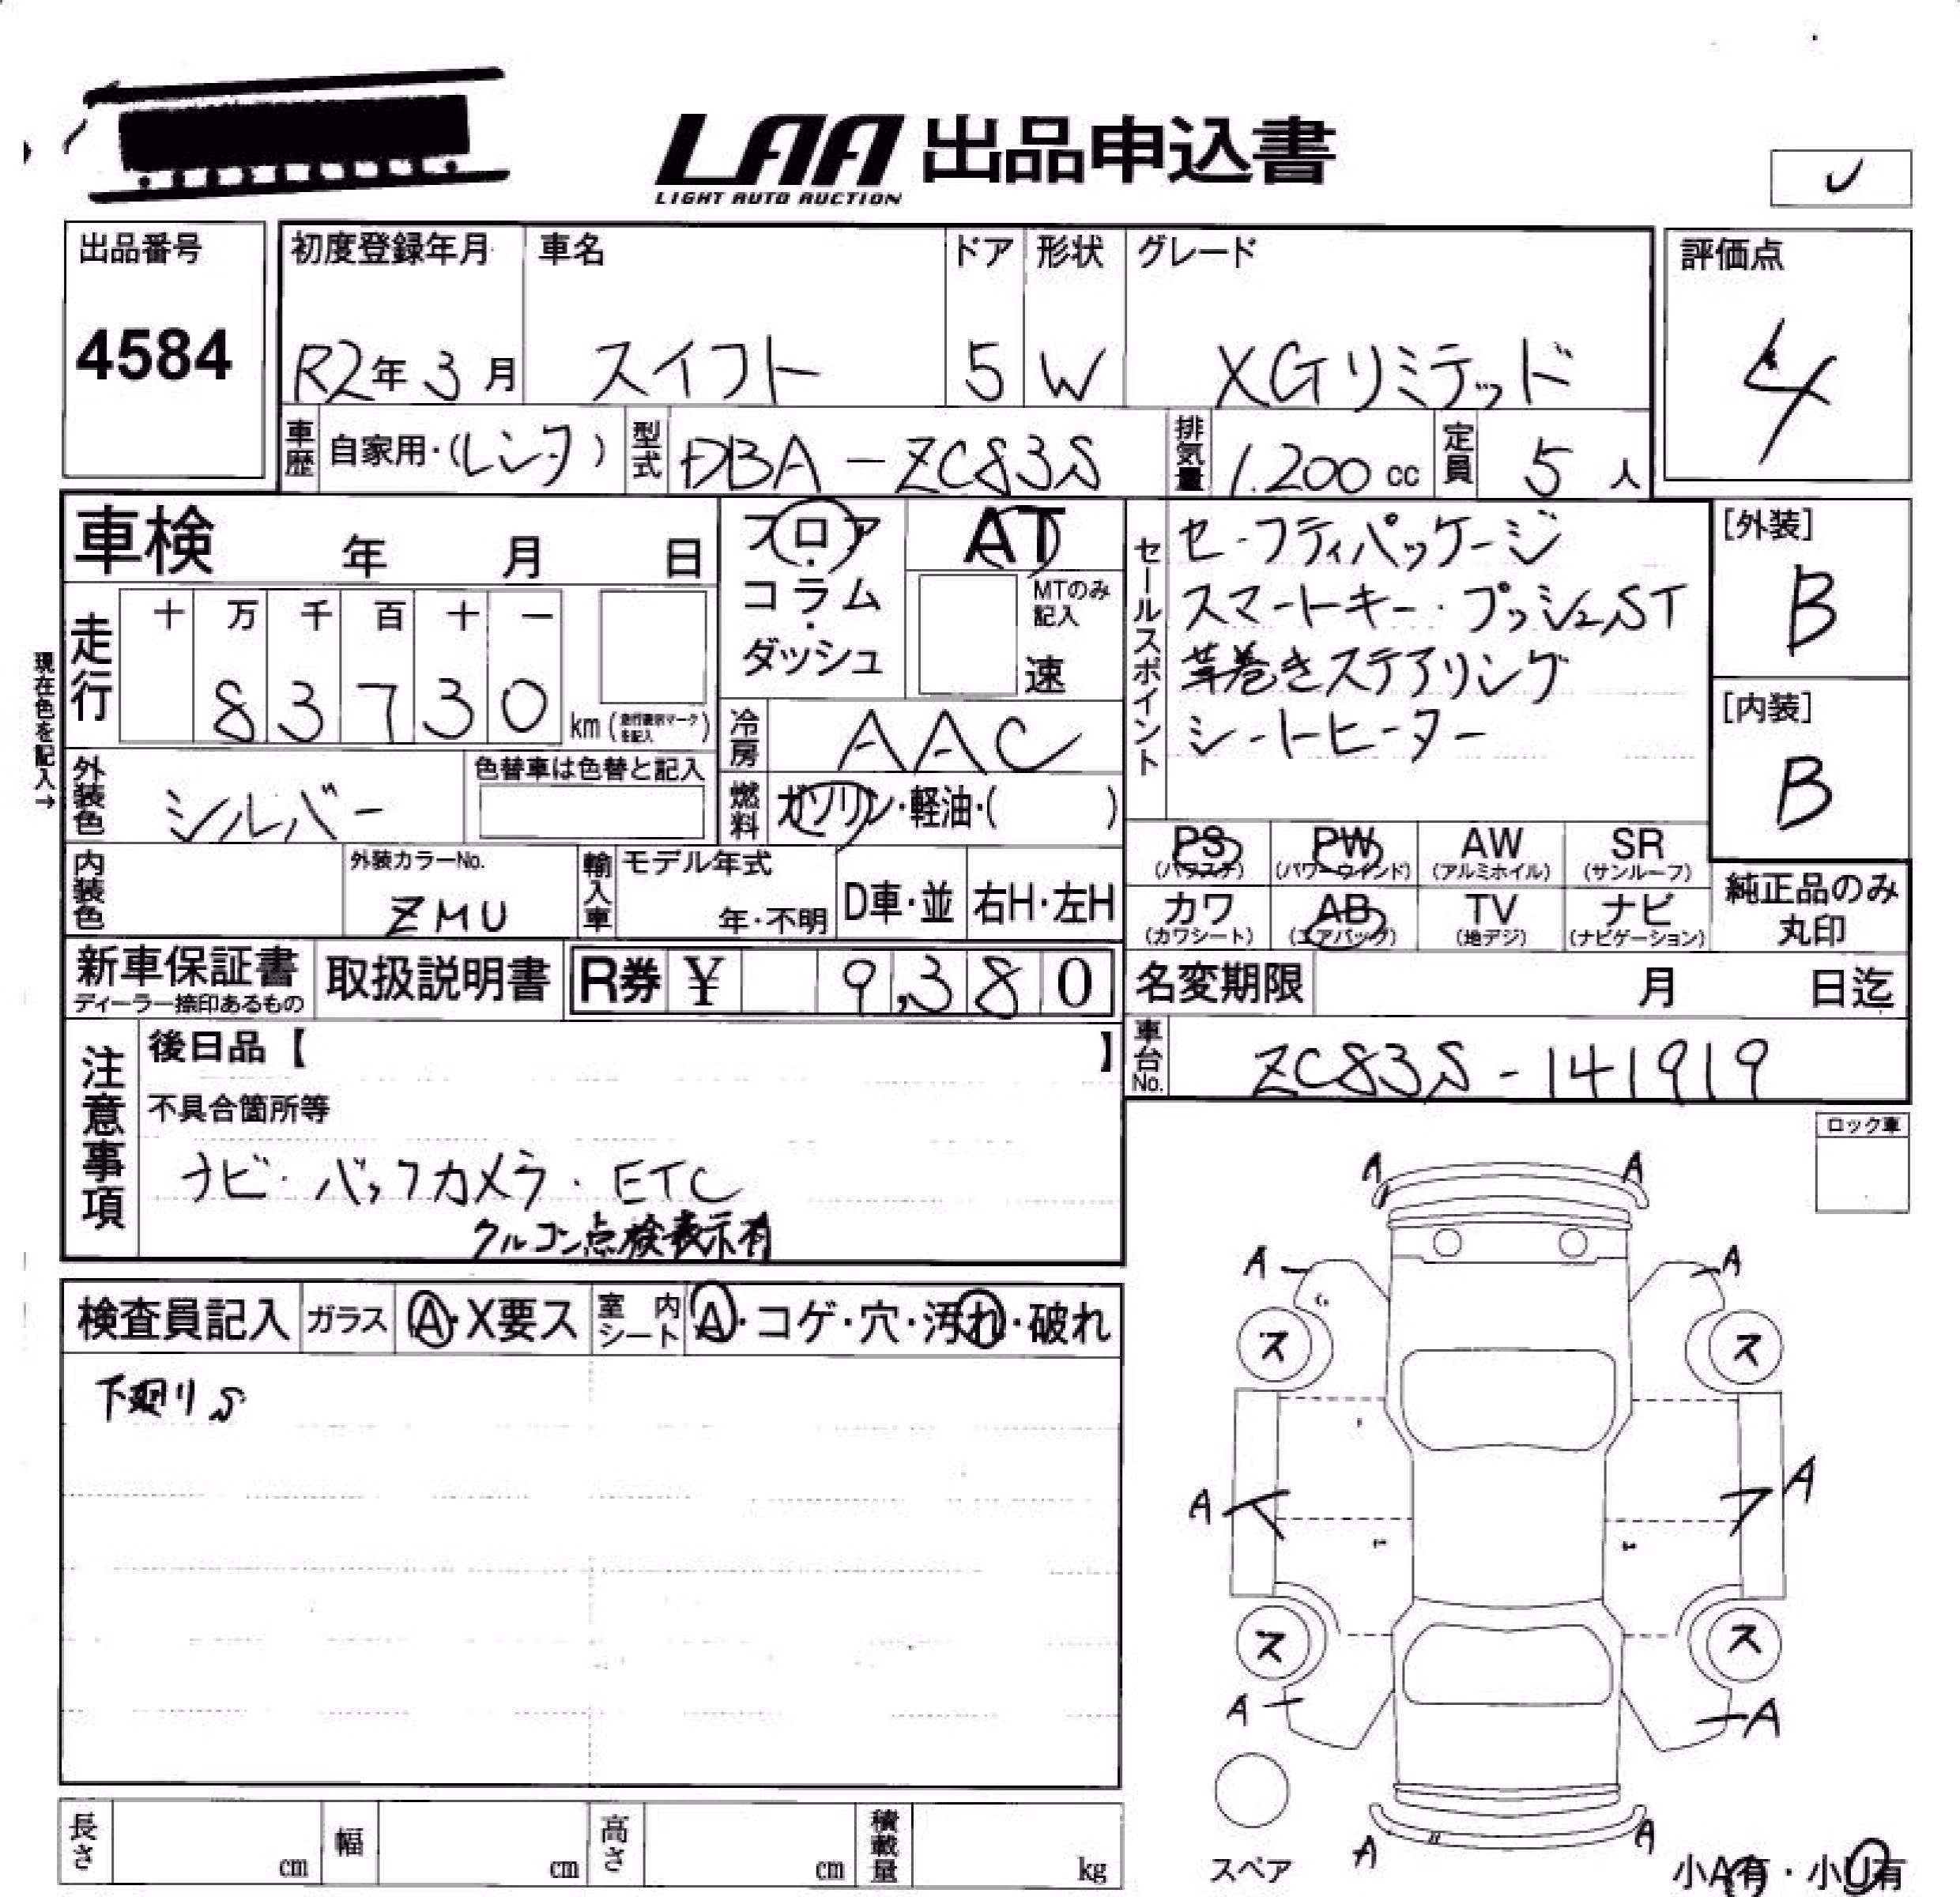 LAA 出品申込書
LIGHT AUTO AUCTION
出品番号
4584
初度登録年月
R2年 3月
車名
スイフト
ドア
5
形状
W
グレード
XGリミテッド
評価点
4
車歴 自家用・(レンタ)
型式 DBA-ZC83S
排気量 1.200 cc
定員 5 人
車検 年 月 日
フロア・コラム・ダッシュ
AT
MTのみ記入
速
セールスポイント
セーフティパッケージ
スマートキー・プッシュST
革巻きステアリング
シートヒーター
[外装]
B
[内装]
B
現在色を記入→
走行
十 万 千 百 十 一
8 3 7 3 0
km (走行表示マークを記入)
冷房 AAC
外装色 シルバー
色替車は色替と記入
燃料 ガソリン・軽油・( )
PS (パワステ)
PW (パワーウインド)
AW (アルミホイル)
SR (サンルーフ)
カワ (カワシート)
AB (エアバッグ)
TV (地デジ)
ナビ (ナビゲーション)
純正品のみ丸印
内装色
外装カラーNo.
ZMU
輸入車
モデル年式
年・不明
D車・並
右H・左H
新車保証書
ディーラー捺印あるもの
取扱説明書
R券 ¥ 9,380
名変期限 月 日迄
車台No. ZC83S-141919
注意事項
後日品【 】
不具合箇所等
ナビ・バックカメラ・ETC
クルコン点検表示有
ロック車
検査員記入
ガラス A・X要ス
室内シート A・コゲ・穴・汚れ・破れ
下廻りS
A A
A A
ス ス
A A
ス ス
A A
A A
スペア
小A有・小U有
長さ cm
幅 cm
高さ cm
積載量 kg